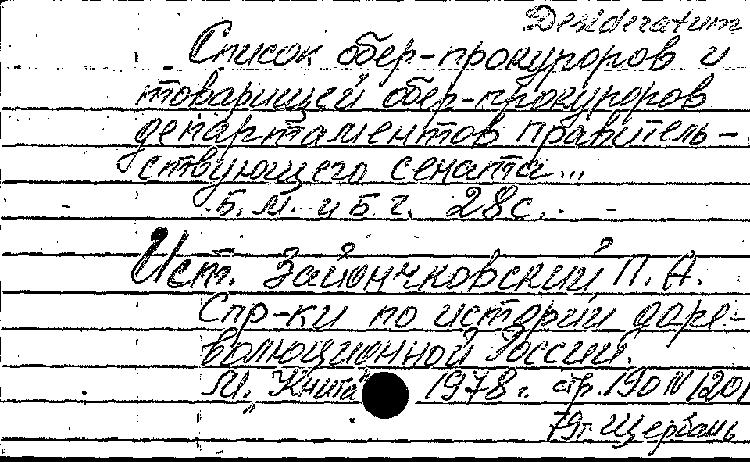 Desideratum
Список обер-прокуроров и
товарищей обер-прокуроров
департаментов правитель-
ствующего сената...
Б.М. и Б.г. 28с.
Ист. Зайончковский П.А.
Спр-ки по истории доре-
волюционной России.
М., "Книга" 1978г. стр.190 № 1201
79г. Щербань